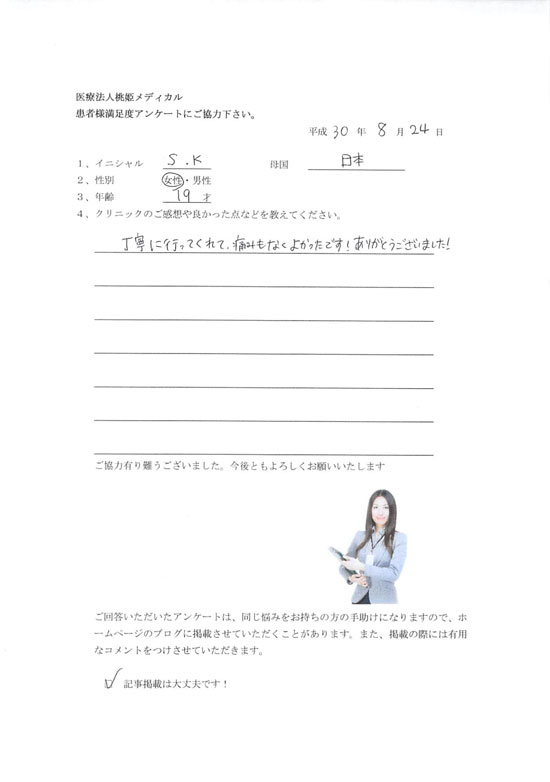 医療法人桃姫メディカル
患者様満足度アンケートにご協力下さい。
平成 30 年 8 月 24 日
1、イニシャル S.K 母国 日本
2、性別 女性・男性
3、年齢 19 才
4、クリニックのご感想や良かった点などを教えてください。
丁寧に行ってくれて、痛みもなくよかったです!ありがとうございました!
ご協力有り難うございました。今後ともよろしくお願いいたします
ご回答いただいたアンケートは、同じ悩みをお持ちの方の手助けになりますので、ホ
ームページのブログに掲載させていただくことがあります。また、掲載の際には有用
なコメントをつけさせていただきます。
記事掲載は大丈夫です!